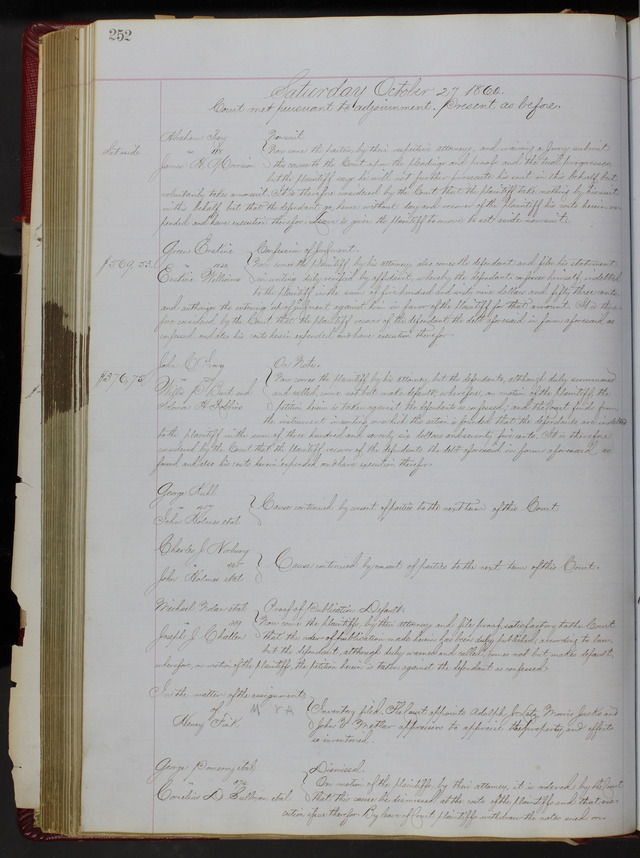 252
Saturday October 27 1860.
Court met pursuant to adjournment. Present as before.
Abraham Nonsuit
vs Now come the parties, by their respective attorneys, and waiving a Jury submit
James H. Morrison the cause to the Court upon the pleadings and proof and the trial progresses,
but the plaintiff says he will not further prosecute his suit in this behalf, but
voluntarily takes a nonsuit. It is therefore considered by the Court that the plaintiff take nothing by his suit
in this behalf but that the defendant go hence without day and recover of the plaintiff his costs herein ex-
pended and have execution therefor. Leave is given the plaintiff to move to set aside nonsuit.
Green Erskine Confession of Judgment.
$569,53. vs Now comes the plaintiff by his attorney, also comes the defendant and files his statement
Erskine Williams in writing duly verified by affidavit, whereby the defendant confesses himself indebted
to the plaintiff in the sum of five hundred and sixty nine dollars and fifty three cents,
and authorizes the entering up of judgment against him in favor of the plaintiff for that amount. It is there-
fore considered by the Court that the plaintiff recover of the defendant the debt aforesaid in form aforesaid as
confessed and also his costs herein expended and have execution therefor.
John C. On Note.
$376,75 vs Now comes the plaintiff by his attorney, but the defendants, although duly summoned
Willis and and called, come not but make default, wherefore, on motion of the plaintiff, the
H. Robbins petition herein is taken against the defendants as confessed, and the Court finds from
the instrument in writing on which the action is founded that the defendants are indebted
to the plaintiff in the sum of three hundred and seventy six dollars and seventy five cents. It is therefore
considered by the Court that the plaintiff recover of the defendants the debt aforesaid in form aforesaid, as
found and also his costs herein expended and have execution therefor.
George
vs Cause continued by consent of parties to the next term of this Court.
John Holmes etal
Charles J.
vs Cause continued by consent of parties to the next term of this Court.
John Holmes etal
Michael Nolan etal Proof of Publication Default.
vs Now come the plaintiffs, by their attorney and file proof, satisfactory to the Court
Joseph J. that the order of publication made herein has been duly published, according to law,
but the defendant, although duly warned and called, comes not but makes default,
wherefore, on motion of the plaintiffs the petition herein is taken against the defendant as confessed.
In the matter of the assignment
of Inventory filed. The Court appoints Adolph J. Morris and
Henry Fink John appraisers to appraise the property and effects
so inventoried.
George Pomeroy etal Dismissed
vs On motion of the plaintiffs, by their attorney, it is ordered by the Court
Cornelius D. Sullivan etal that this cause be dismissed, at the costs of the plaintiffs and that exe-
cution issue therefor. By leave of Court plaintiffs withdraw the notes sued on